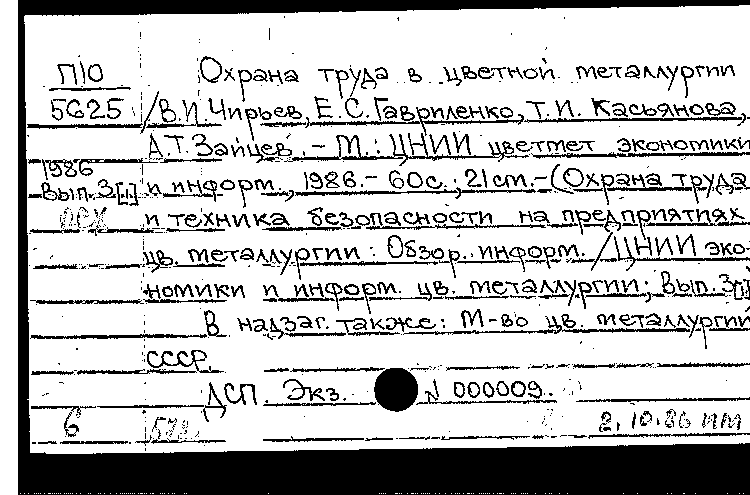 П/О Охрана труда в цветной металлургии
5625 /В.И. Чирьев, Е.С. Гавриленко, Т.И. Касьянова,
А.Т. Зайцев. – М.: ЦНИИ цветмет экономики
1986
Вып. 3[..] и информ., 1986. – 60с.; 21см. – (Охрана труда
и техника безопасности на предприятиях
цв. металлургии: Обзор. информ. / ЦНИИ эко-
номики и информ. цв. металлургии; Вып. 3[..]
В надзаг. также: М-во цв. металлургии
СССР.
ДСП. Экз. N 000009.
6 2.10.86